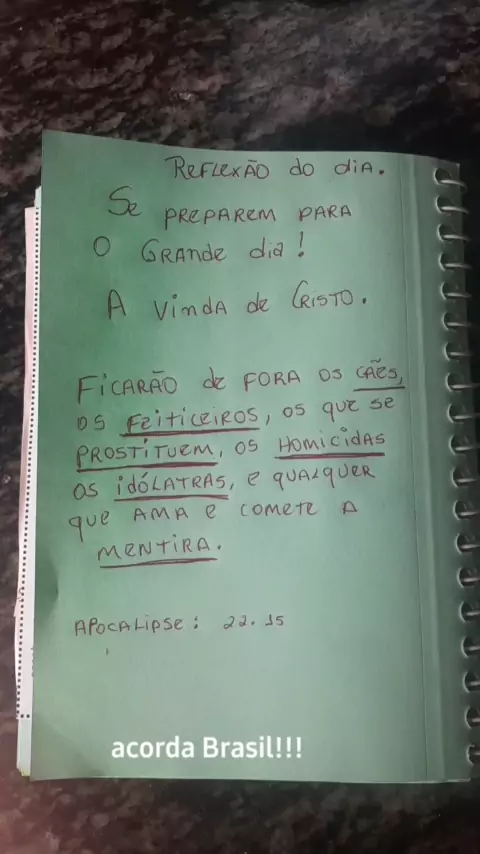 REFLEXÃO do dia.
Se PREPAREM PARA
O GRANde dia!
A VINDA de CRISTO.
FICARÃO de FORA OS CÃES,
OS FEITICEIROS, OS que se
PROSTITUEM, OS HOMICIDAS
OS IDÓLATRAS, E QUALQUER
que AMA E COMETE A
MENTIRA.
APOCALIPSE: 22.15
acorda Brasil!!!